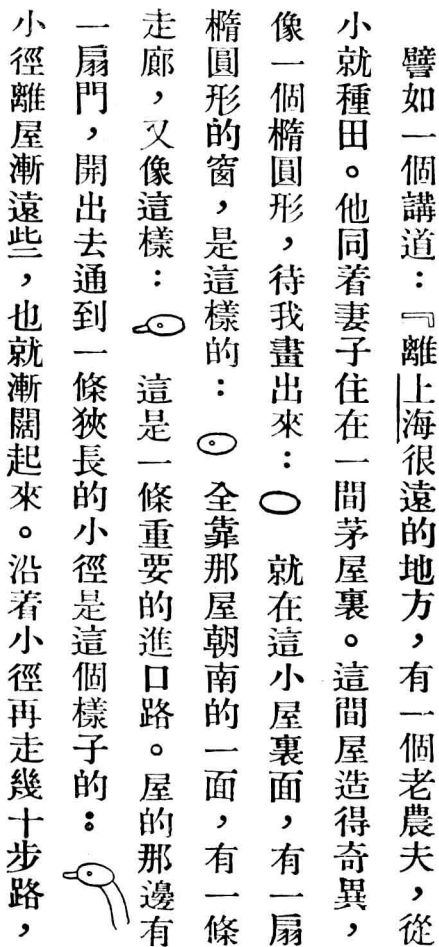 譬如一個講道：『離上海很遠的地方，有一個老農夫，從
小就種田。他同着妻子住在一間茅屋裏。這間屋造得奇異，
像一個橢圓形，待我畫出來：就在這小屋裏面，有一扇
橢圓形的窗，是這樣的：全靠那屋朝南的一面，有一條
走廊，又像這樣：這是一條重要的進口路。屋的那邊有
一扇門，開出去通到一條狹長的小徑是這個樣子的：
小徑離屋漸遠些，也就漸闊起來。沿着小徑再走幾十步路，